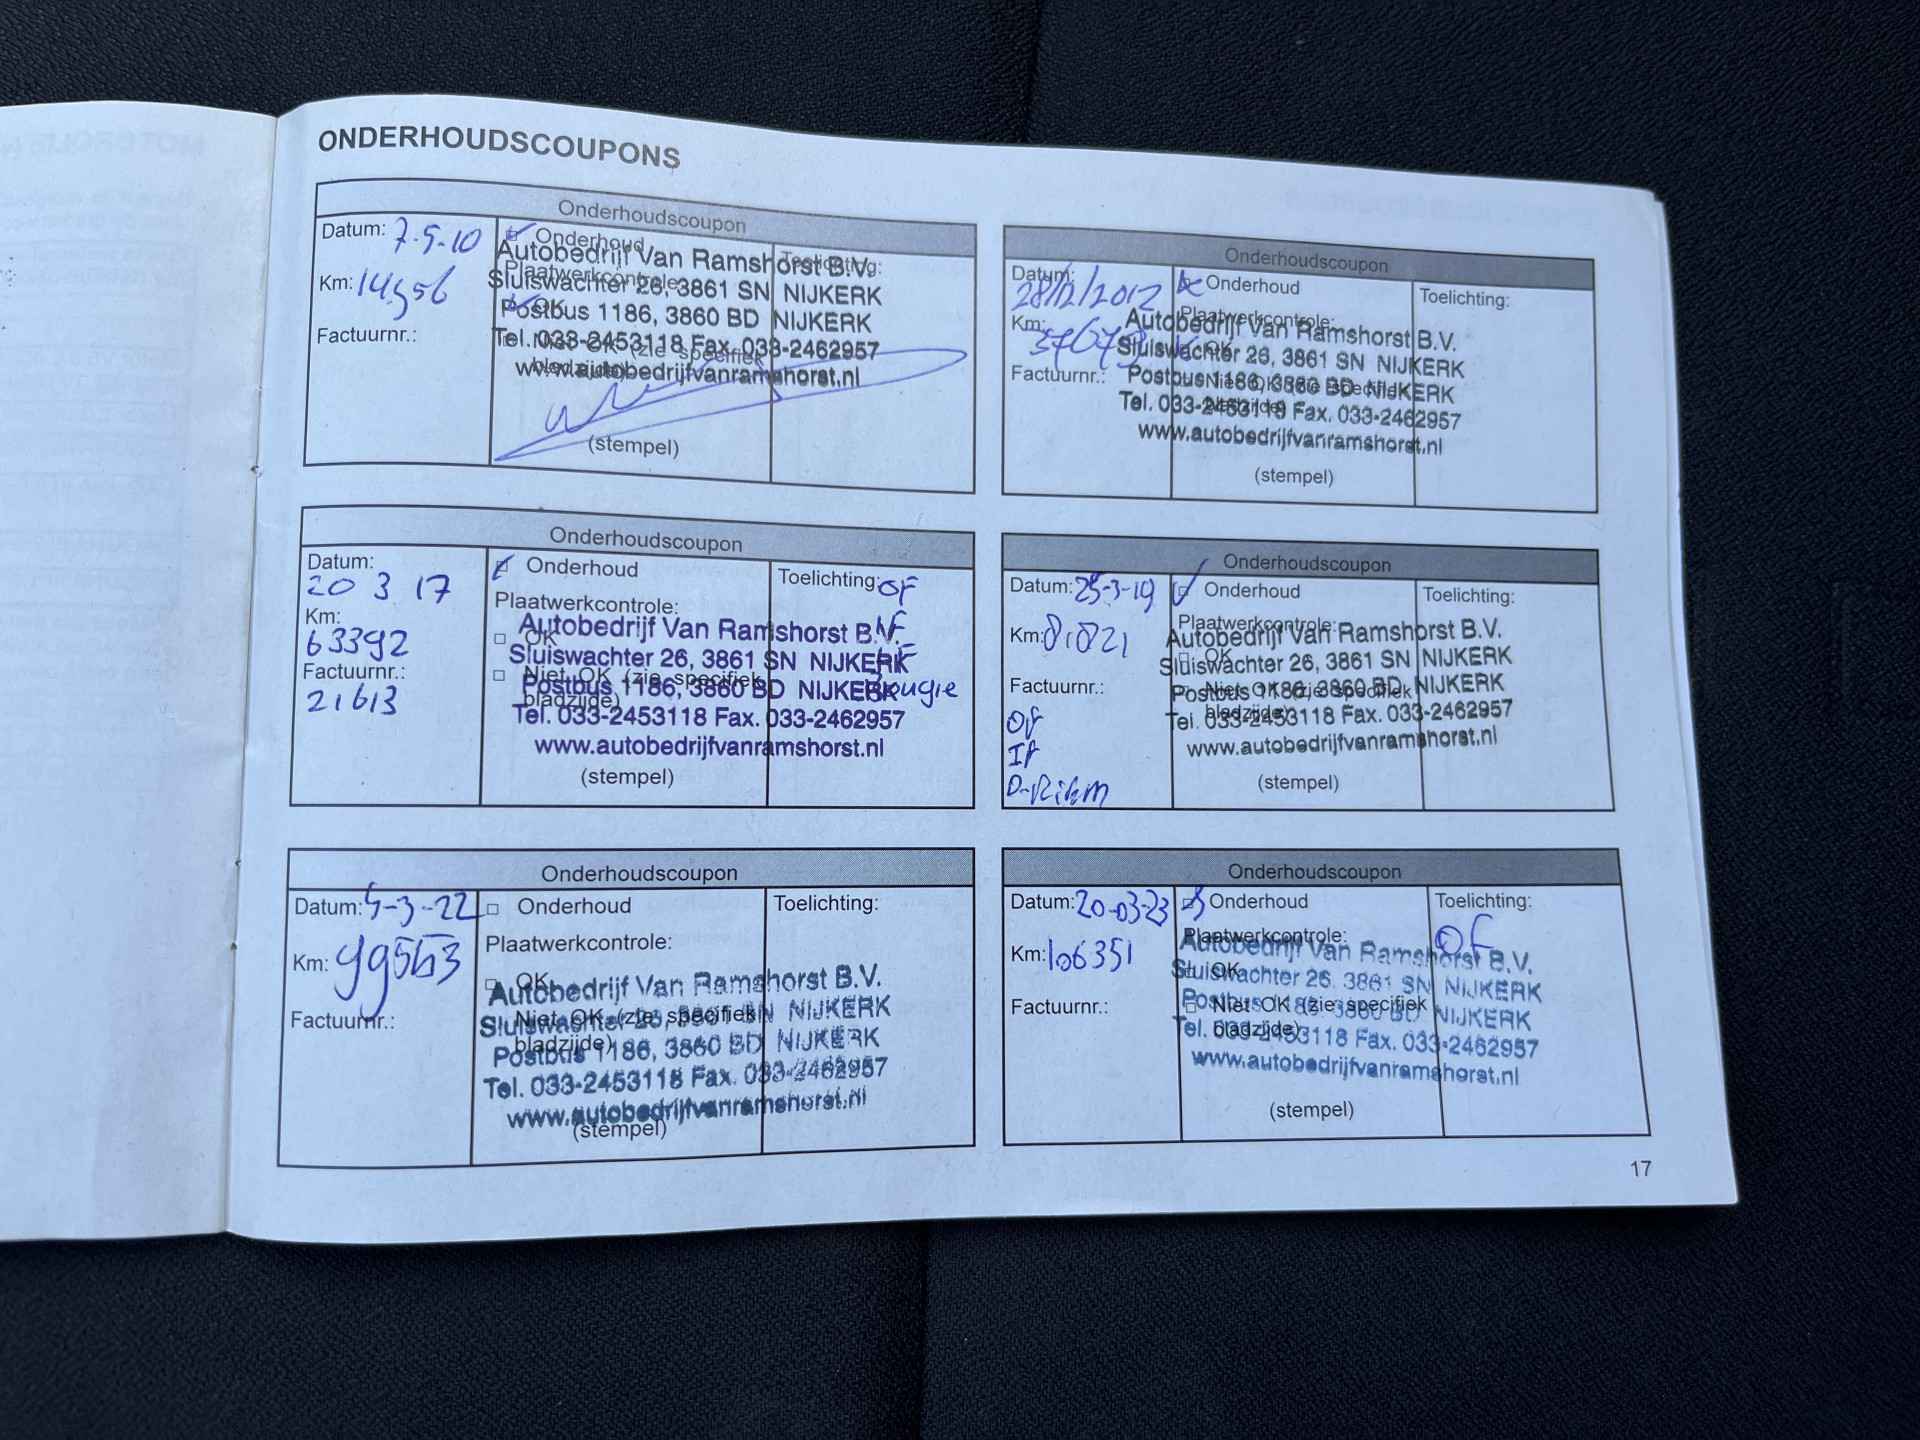 ONDERHOUDSCOUPONS
Onderhoudscoupon
Datum: 7-5-10
Km: 14956
Factuurnr.:
Onderhoud
Plaatwerkcontrole:
OK
Niet OK (zie specifiek
bladzijde)
Autobedrijf Van Ramshorst B.V.
Sluiswachter 26, 3861 SN NIJKERK
Postbus 1186, 3860 BD NIJKERK
Tel. 033-2453118 Fax. 033-2462957
www.autobedrijfvanramshorst.nl
(stempel)
Toelichting:
Onderhoudscoupon
Datum:
28/12/2012
Km:
Factuurnr.:
Onderhoud
Plaatwerkcontrole:
OK
Niet OK (zie specifiek
bladzijde)
Autobedrijf Van Ramshorst B.V.
Sluiswachter 26, 3861 SN NIJKERK
Postbus 1186, 3860 BD NIJKERK
Tel. 033-2453118 Fax. 033-2462957
www.autobedrijfvanramshorst.nl
(stempel)
Toelichting:
Onderhoudscoupon
Datum:
20 3 17
Km:
63392
Factuurnr.:
21613
Onderhoud
Plaatwerkcontrole:
OK
Niet OK (zie specifiek
bladzijde)
Autobedrijf Van Ramshorst B.V.
Sluiswachter 26, 3861 SN NIJKERK
Postbus 1186, 3860 BD NIJKERK
Tel. 033-2453118 Fax. 033-2462957
www.autobedrijfvanramshorst.nl
(stempel)
Toelichting: OF
Bougie
Onderhoudscoupon
Datum: 25-3-19
Km: 81821
Factuurnr.:
OF
IF
D-Riem
Onderhoud
Plaatwerkcontrole:
OK
Niet OK (zie specifiek
bladzijde)
Autobedrijf Van Ramshorst B.V.
Sluiswachter 26, 3861 SN NIJKERK
Postbus 1186, 3860 BD NIJKERK
Tel. 033-2453118 Fax. 033-2462957
www.autobedrijfvanramshorst.nl
(stempel)
Toelichting:
Onderhoudscoupon
Datum: 5-3-22
Km: 99563
Factuurnr.:
Onderhoud
Plaatwerkcontrole:
OK
Niet OK (zie specifiek
bladzijde)
Autobedrijf Van Ramshorst B.V.
Sluiswachter 26, 3861 SN NIJKERK
Postbus 1186, 3860 BD NIJKERK
Tel. 033-2453118 Fax. 033-2462957
www.autobedrijfvanramshorst.nl
(stempel)
Toelichting:
Onderhoudscoupon
Datum: 20-03-23
Km: 106351
Factuurnr.:
Onderhoud
Plaatwerkcontrole:
OK
Niet OK (zie specifiek
bladzijde)
Autobedrijf Van Ramshorst B.V.
Sluiswachter 26, 3861 SN NIJKERK
Postbus 1186, 3860 BD NIJKERK
Tel. 033-2453118 Fax. 033-2462957
www.autobedrijfvanramshorst.nl
(stempel)
Toelichting:
OF
17